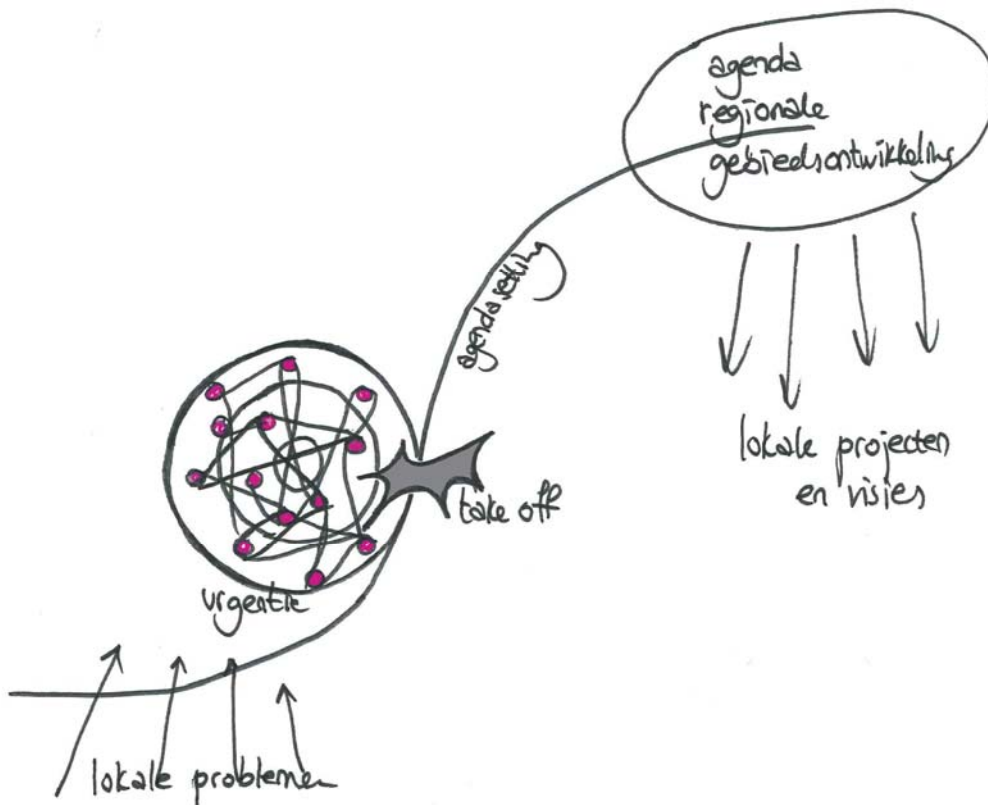 agenda
regionale
gebiedsontwikkeling
agendasetting
take off
lokale projecten
en visies
urgentie
lokale problemen